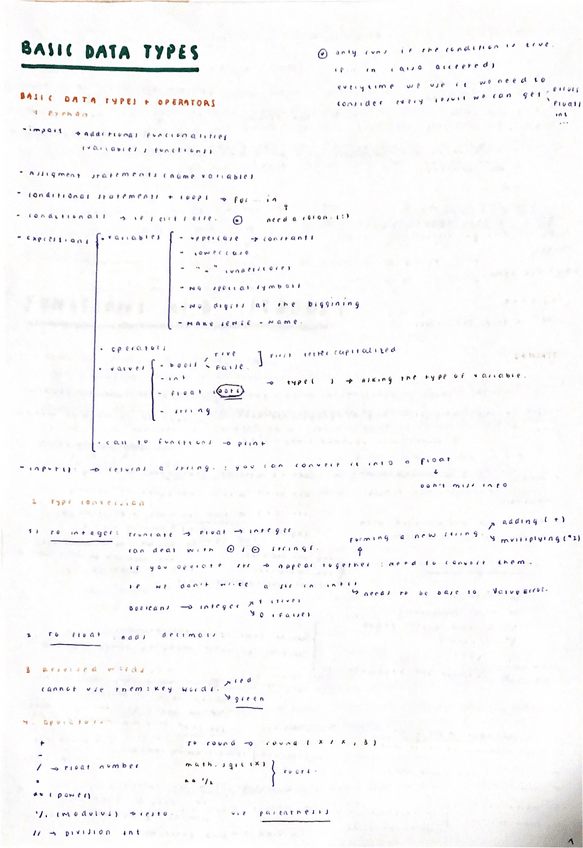 BASIC DATA TYPES
⊙ only runs if the condition is true.
if... in (also accepted)
everytime we use it we need to
consider every result we can get
errors
floats
int
...
BASIC DATA TYPES + OPERATORS
Python.
- import → additional funcionalities
(variables & functions).
- Assigment statements (name variables)
- conditional statements + loops → for... in
- conditionals → if / elif / else. ⊙ need a colon (:)
- expressions
· variables
- uppercase → constants
- lowercase
- "_" (underscores)
- No special symbols
- No digits at the biggining
- MAKE SENSE - name.
· operators
· values
- bools
True
False.
] First letter capitalized
- int
- float
- string
→ type( ) → asking the type of variable.
· call to functions → print
- input(): → returns a string. : you can convert it into a float
↓
don't miss info
1. Type conversion
to integer: truncate → float → integer
can deal with strings.
Forming a new string.
adding (+)
multiplying (*2)
if you operate str → appear together : need to convert them.
if we don't write a str in int()
↳ needs to be base 10 : ValueError.
Booleans → integer
1 (True)
0 (False)
2. to float : adds decimals.
3. Reserved words
cannot use them: key words.
red
green
4. Operators
+
-
/ → float number
*
** (power)
% (modulus) → resto.
// → division int
to round → round (
math.sqrt(x)
** 1/2
} roots.
use parenthesis
1